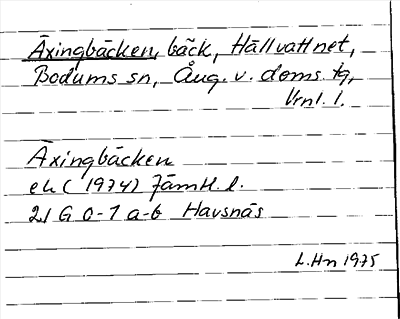 Äxingbäcken, bäck, Hällvattnet,
Bodums sn, Ång. v. doms. tg,
Vrnl. l.
Äxingbäcken
ek (1974) Jämtl. l.
21 G 0-1 a-b Havsnäs
L. Hn 1975